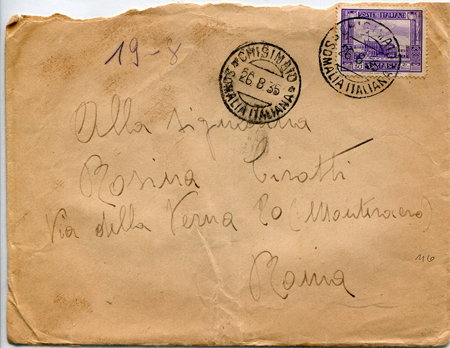 19-8
CHISIMAIO
26.8.35
SOMALIA ITALIANA
POSTE ITALIANE
CHISIMAIO
SOMALIA ITALIANA
Alla signorina
Rosina
Via della Verna 20 (Montesacro)
Roma
116